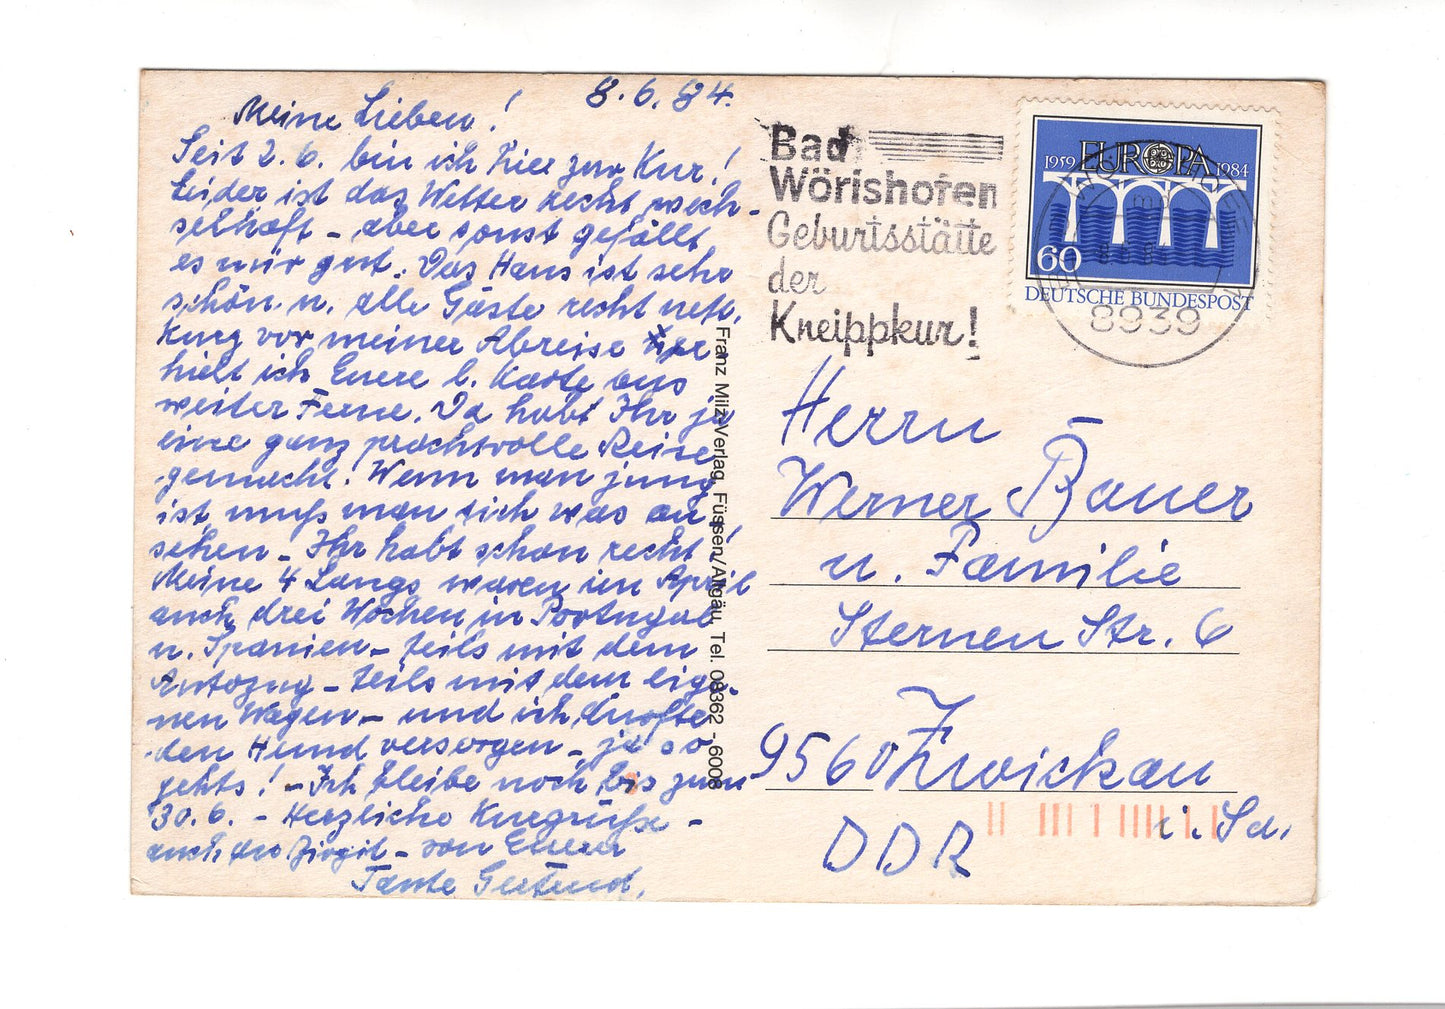 8.6.84.
Meine Lieben!
Seit 2.6. bin ich hier zur Kur!
Leider ist das Wetter recht wech-
selhaft – aber sonst gefällt
es mir gut. Das Haus ist sehr
schön u. alle Gäste recht nett.
Kurz vor meiner Abreise er
hielt ich Euere l. Karte aus
weiter Ferne. Da habt Ihr ja
eine ganz prachtvolle Reise
gemacht. Wenn man jung
ist, muß man sich was an
sehen – Ihr habt schon recht!
Meine 4 Langs waren im April
auch drei Wochen in Portugal
u. Spanien – teils mit dem
Autozug – teils mit dem eige-
nen Wagen – und ich durfte
den Hund versorgen – ja so
gehts! – Ich bleibe noch bis zum
30.6. – Herzliche Kurgrüße –
auch – von Euerer
Tante
Franz Milz Verlag, Füssen/Allgäu, Tel. 08362 - 6008
Bad
Wörishofen
Geburtsstätte
der
Kneippkur!
1959 EUROPA 1984
60
DEUTSCHE BUNDESPOST
8939
Herrn
Werner Bauer
u. Familie
Sternen Str. 6
9560 Zwickau
i. Sa.
DDR